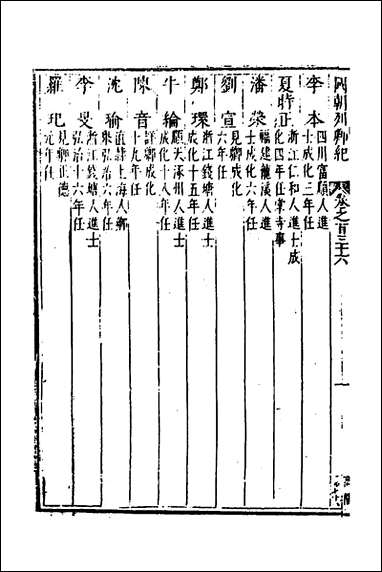 國朝列卿紀 卷之百三十六
李本 四川富順人進
士成化三年任
夏時正 浙江仁和人進士成
化四年任掌寺事
潘榮 福建龍溪人進
士成化六年任
劉宣 見卿成化
六年任
鄭環 浙江錢塘人進士
成化十五年任
牛綸 順天涿州人進士
成化十八年任
陳音 詳卿成化
十九年任
沈瑜 直隸上海人鄉
舉弘治六年任
李旻 浙江錢塘人進士
弘治十六年任
羅玘 見卿正德
元年任